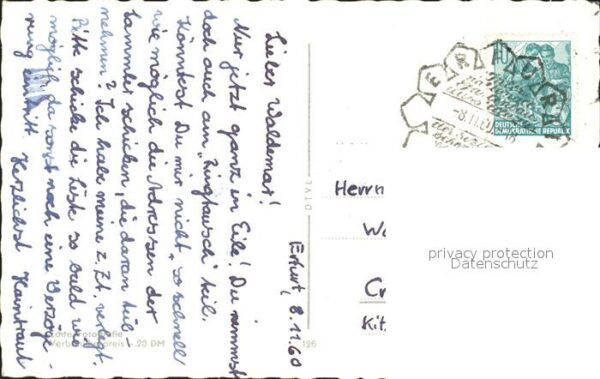 Erfurt, 8.11.60
Lieber Waldemar!
Nur jetzt ganz in Eile! Du nimmst
doch auch am "Ringtausch" teil.
Könntest Du mir nicht so schnell
wie möglich die Adressen der
Sammler schicken, die daran teil-
nehmen? Ich habe meine z. Zt. verlegt.
Bitte schicke die Liste so bald wie
möglich, da sonst noch eine Verzöge-
rung eintritt. Herzlichst Haintraut
Echte Fotografie
Verbraucherpreis -.20 DM
196
Herrn
Kitz
ERFURT
8.11.60
DEUTSCHE
DEMOKRATISCHE REPUBLIK
privacy protection
Datenschutz